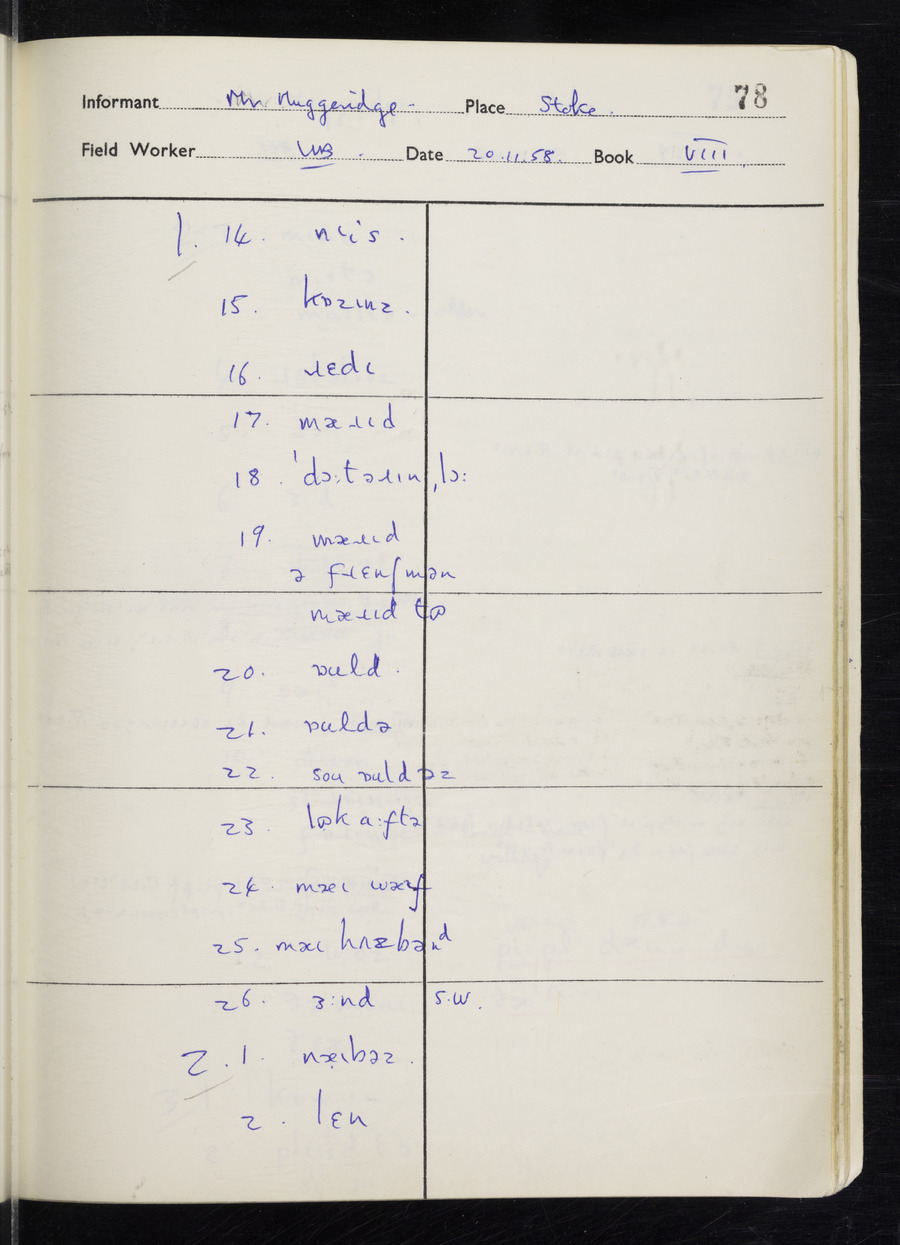 78
Informant Mr Muggeridge - Place Stoke.
Field Worker WB. Date 20.11.58. Book VIII
1. 14. nɩis.
15. kɒzɪnz.
16. ɹɛdɩ
17. mæɹɩd
18. ˈdɔ:təɹɪnˌlɔ:
19. mæɹɩd
ə fɹɛnʃmən
mæɹɩd tɷ
20. ɒuld.
21. ɒuldə
22. sou ɒuldəz
23. lɷk ɑ:ftə
24. mæɩ wæɩf
25. mæɩ hʌzbənd
26. ɜ:nd s.w.
2.1. næɩbəz.
2. lɛn